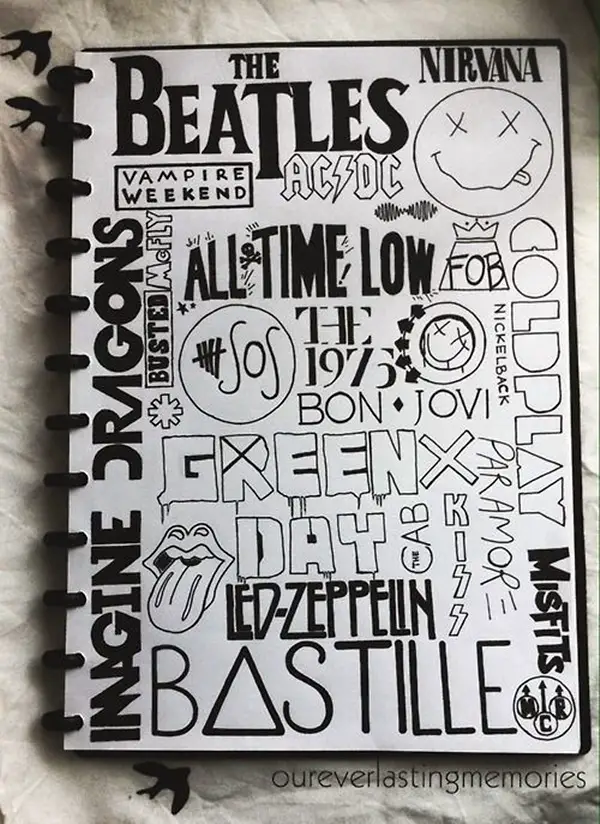 THE
BEATLES
NIRVANA
VAMPIRE
WEEKEND
AC/DC
McFLY
BUSTED
ALL TIME LOW
FOB
COLDPLAY
IMAGINE DRAGONS
SOS
THE
1975
NICKELBACK
BON JOVI
GREEN
DAY
X
PARAMORE
THE CAB
KISS
LED-ZEPPELIN
MISFITS
BASTILLE
MCR
oureverlastingmemories